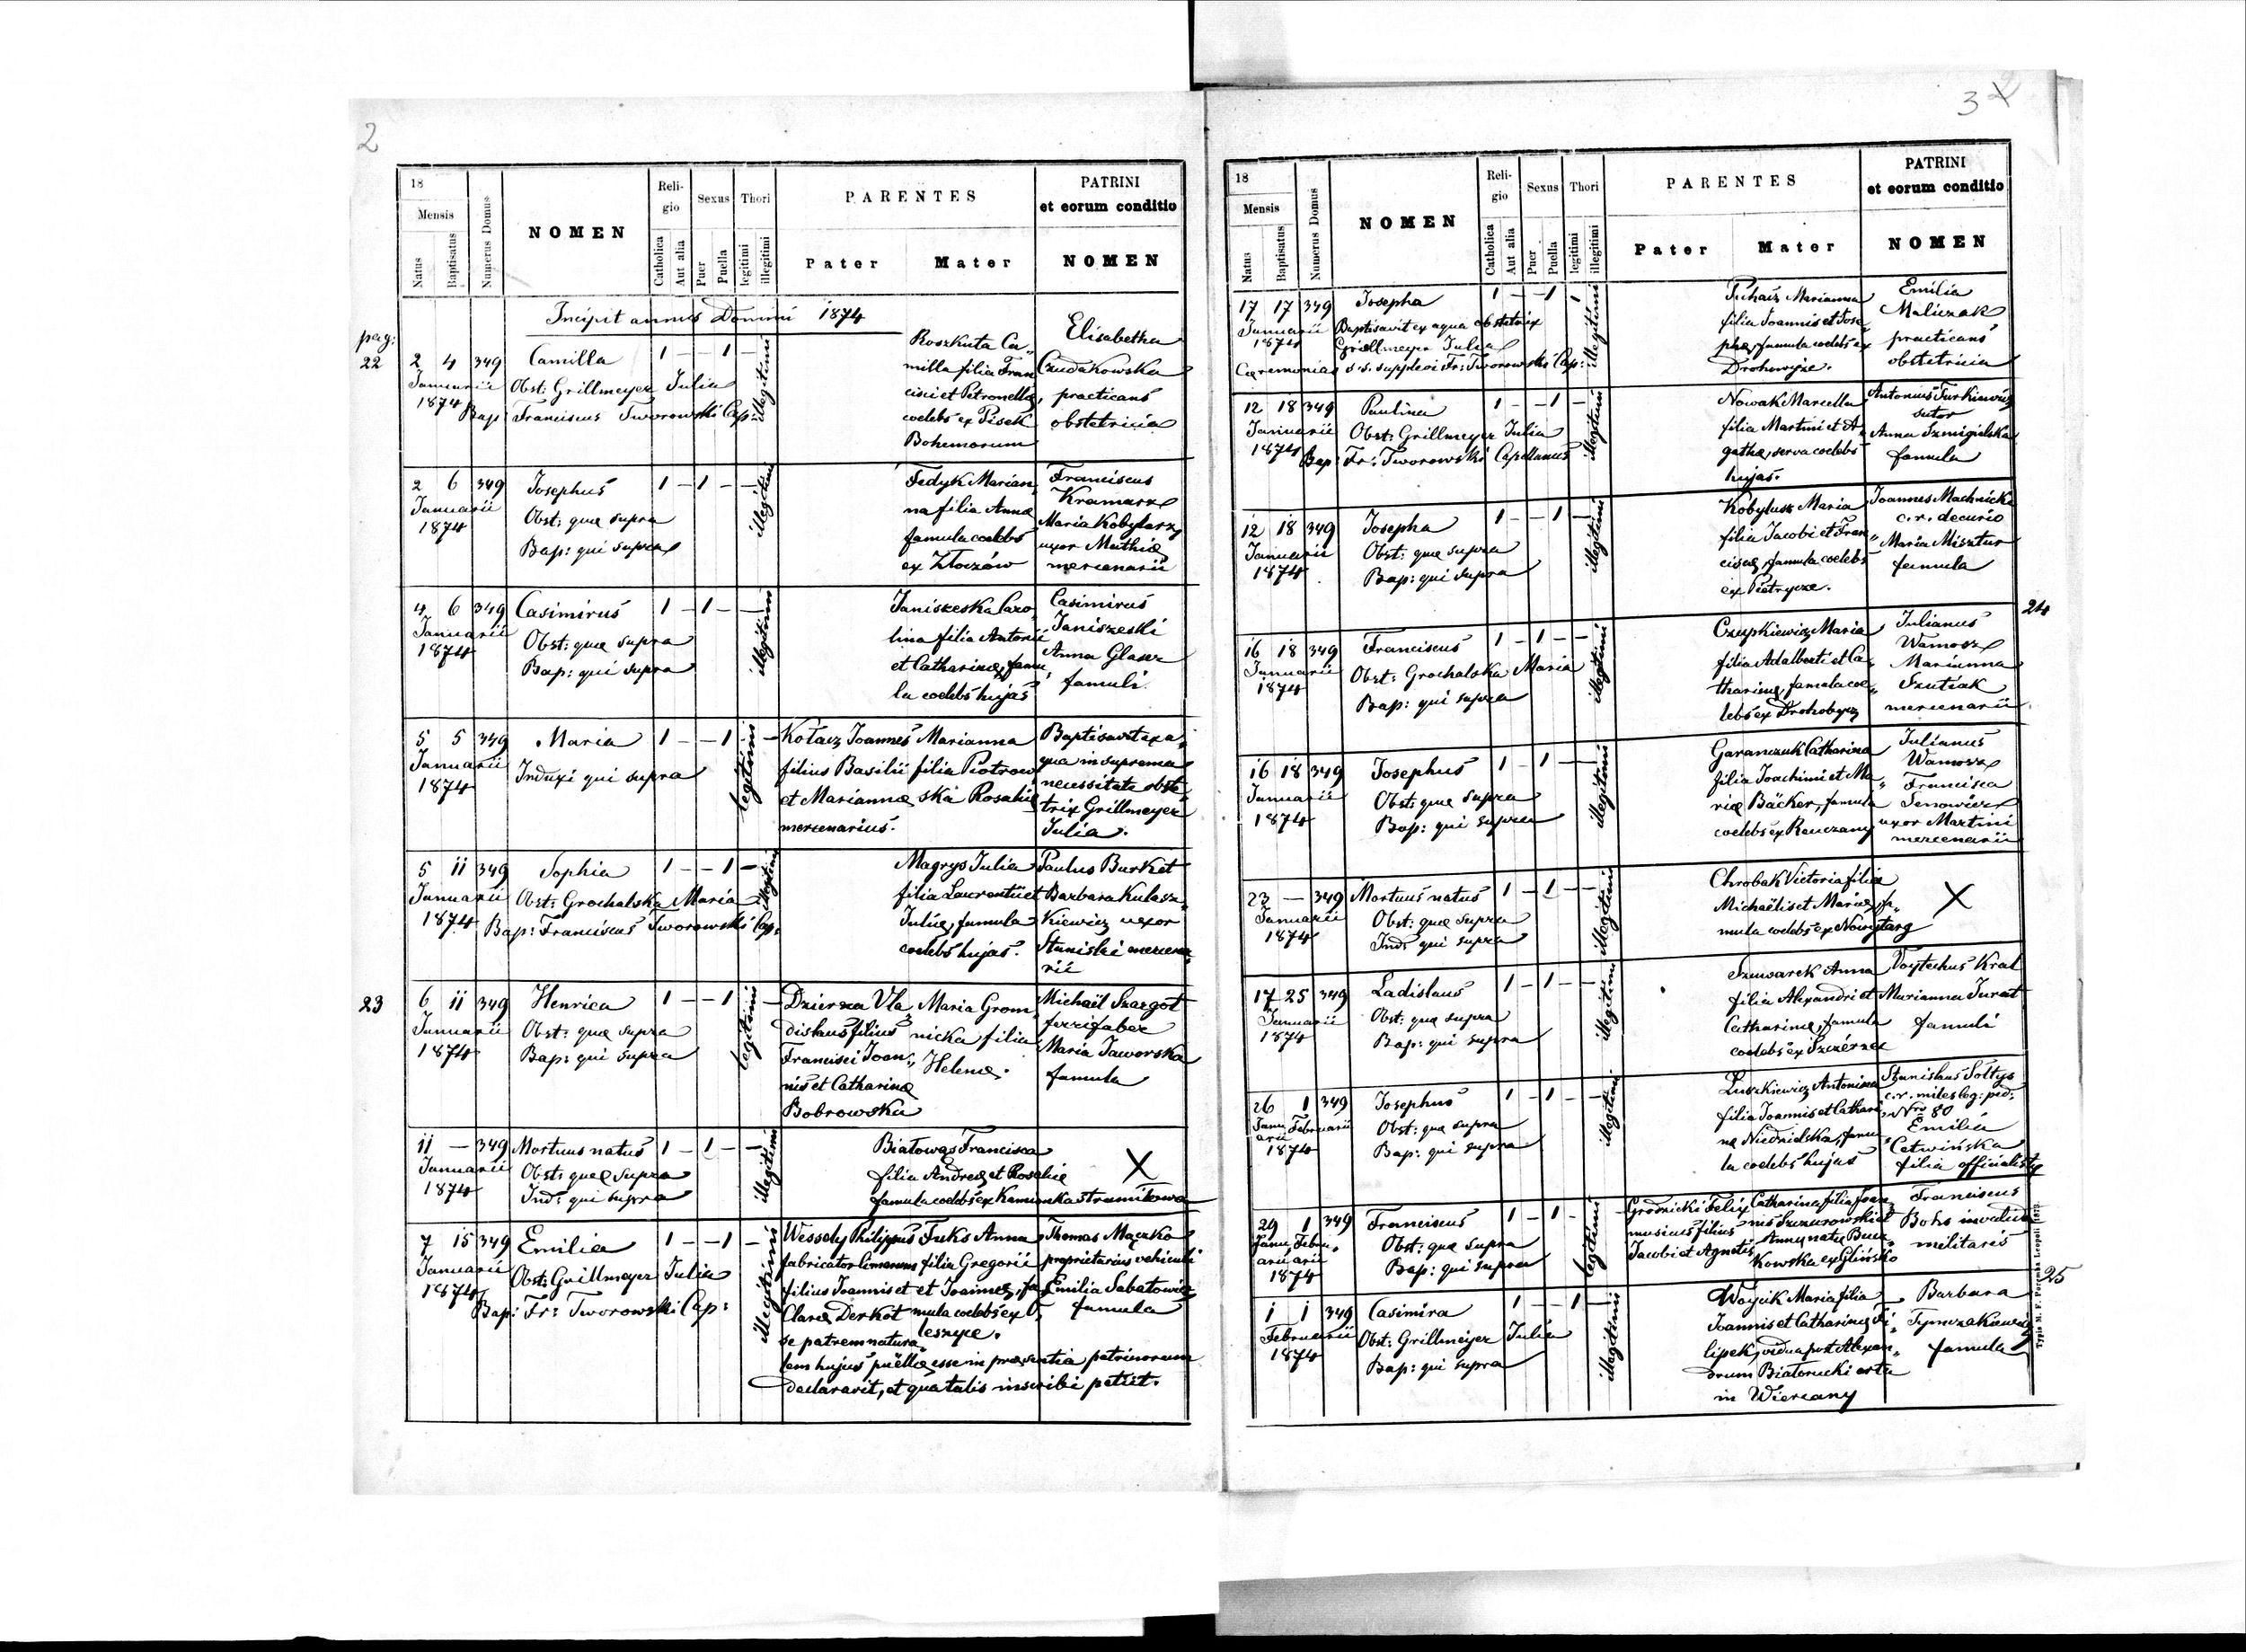 2
18
Mensis
Natus
Baptisatus
Numerus Domus
NOMEN
Religio
Catholica
Aut alia
Sexus
Puer
Puella
Thori
legitimi
illegitimi
PARENTES
Pater
Mater
PATRINI
et eorum conditio
NOMEN
Incipit annus Domini 1874
pag:
22
2 4 349 Camilla 1 – – 1 –
Januarii
1874
Obst: Grillmeyer Julia
Bap: Franciscus Tworowski Cap:
illegitimi
Roszkuta Ca„
milla filia Fran
cisci et Petronellæ,
coelebs ex Pisek
Bohemorum
Elisabetha
Czudakowska
practicans
obstetricia
2 6 349 Josephus 1 – 1 – –
Januarii
1874
Obst: quæ supra
Bap: qui supra
illegitimi
Fedyk Marian„
na filia Annæ
famula coelebs
ex Złoczów
Franciscus
Kramarz
Maria Kobylarz
uxor Mathiæ
mercenarii
4 6 349 Casimirus 1 – 1 – –
Januarii
1874
Obst: quæ supra
Bap: qui supra
illegitimi
Janiszeska Caro„
lina filia Antonii
et Catharinæ, famu„
la coelebs hujas
Casimirus
Janiszeski
Anna Glaser
famuli
5 5 349 Maria 1 – – 1 – –
Januarii
1874
Induxi qui supra
legitimi
Kołacz Joannes
filius Basilii
et Mariannæ
mercenarius.
Marianna
filia Piotrow
ska Rosaliæ
Baptisavit ex a„
qua in suprema
necessitate obste
trix Grillmeyer
Julia.
5 11 349 Sophia 1 – – 1 –
Januarii
1874
Obst: Grochalska Maria
Bap: Franciscus Tworowski Cap:
illegitimi
Magrys Julia
filia Laurentii et
Juliæ, famula
coelebs hujas.
Paulus Burket
Barbara Kulasz„
kiewicz uxor
Stanislai mercena„
rii
23
6 11 349 Henrica 1 – – 1 –
Januarii
1874
Obst: quæ supra
Bap: qui supra
legitimi
Dzierza Vla„
dislaus filius
Francisci Joan„
nis et Catharinæ
Bobrowska
Maria Grom„
nicka filia
Helenæ.
Michaël Szargot
ferrifaber
Maria Jaworska
famula
11 – 349 Mortuus natus 1 – 1 – –
Januarii
1874
Obst: quæ supra
Ind: qui supra
illegitimi
Białowąs Francisca
filia Andreæ et Rosaliæ
famula coelebs ex Kamionka Strumiłowa
X
7 15 349 Emilia 1 – – 1 –
Januarii
1874
Obst: Grillmeyer Julia
Bap: Fr: Tworowski Cap:
illegitimi
Wessely Philippus
fabricator limarum
filius Joannis et
Claræ Derkot
se patrem natura„
Fuks Anna
filia Gregorii
et Joannæ, fa„
mula coelebs ex O„
leszyce.
lem hujus puellæ esse in præsentia patrinorum
declaravit, et qua talis inscribi petiit.
Thomas Mączko
proprietarius vehiculi
Emilia Sabatowicz
famula
3
18
Mensis
Natus
Baptisatus
Numerus Domus
NOMEN
Religio
Catholica
Aut alia
Sexus
Puer
Puella
Thori
legitimi
illegitimi
PARENTES
Pater
Mater
PATRINI
et eorum conditio
NOMEN
17 17 349 Josepha 1 – – 1 –
Januarii
1874
Baptisavit ex aqua obstetrix
Grillmeyer Julia
Cæremonias s.s. supplevi Fr: Tworowski Cap:
illegitimi
Marianna
filia Joannis et Jose„
phæ, famula coelebs ex
Drohowyże.
Emilia
Maliczak
practicans
obstetricia
12 18 349 Paulina 1 – – 1 –
Januarii
1874
Obst: Grillmeyer Julia
Bap: Fr: Tworowski Capellanus
illegitimi
Nowak Marcella
filia Martini et A„
gathæ, serva coelebs
hujas.
Antonius Turkiewicz
sutor
Anna Szmigielska
famula
12 18 349 Josepha 1 – – 1 –
Januarii
1874
Obst: quæ supra
Bap: qui supra
illegitimi
Kobylusz Maria
filia Jacobi et Fran„
ciscæ, famula coelebs
ex Pietrycze.
Joannes Machnicki
c. r. decurio
Maria Misztur
famula
24
16 18 349 Franciscus 1 – 1 – –
Januarii
1874
Obst: Grochalska Maria
Bap: qui supra
illegitimi
Czupkiewicz Maria
filia Adalberti et Ca„
tharinæ, famula coe„
lebs ex Drohobycz
Julianus
Wamosz
Marianna
Szutiak
mercenarii
16 18 349 Josephus 1 – 1 – –
Januarii
1874
Obst: quæ supra
Bap: qui supra
illegitimi
Garanczuk Catharina
filia Joachimi et Ma„
riæ Bäcker, famula
coelebs ex Rauczany
Julianus
Wamosz
Francisca
Senowicz
uxor Martini
mercenarii
23 – 349 Mortuus natus 1 – 1 – –
Januarii
1874
Obst: quæ supra
Ind: qui supra
illegitimi
Chrobak Victoria filia
Michaëlis et Mariæ, fa„
mula coelebs ex Nowytarg
X
17 25 349 Ladislaus 1 – 1 – –
Januarii
1874
Obst: quæ supra
Bap: qui supra
illegitimi
Szuwarek Anna
filia Alexandri et
Catharinæ, famula
coelebs ex Szczérzec
Voytechus Kral
Marianna Jurat
famuli
26 1 349 Josephus 1 – 1 – –
Januarii Februarii
1874
Obst: quæ supra
Bap: qui supra
illegitimi
Luszkiewicz Antonina
filia Joannis et Cathari„
næ Niedzielska, famu„
la coelebs hujas
Stanislaus Sołtys
c. r. miles leg: ped:
Nro 80
Emilia
Cetwińska
filia officialistæ
29 1 349 Franciscus 1 – 1 – –
Januarii Februarii
1874
Obst: quæ supra
Bap: qui supra
legitimi
Grodnicki Felix
musicus filius
Jacobi et Agnetis
Catharina filia Joan„
nis Szczurowski et
Annæ natæ Bucz„
kowska ex Glińsko
Franciscus
Bohs invalidus
militaris
25
1 1 349 Casimira 1 – – 1 –
Februarii
1874
Obst: Grillmeyer Julia
Bap: qui supra
illegitimi
Woycik Maria filia
Joannis et Catharinæ Fi„
lipek, vidua post Alexan„
drum Białorucki orta
in Wierzany
Barbara
Tymczakiewicz
famula
Typis M. F. Poremba Leopoli 1873.